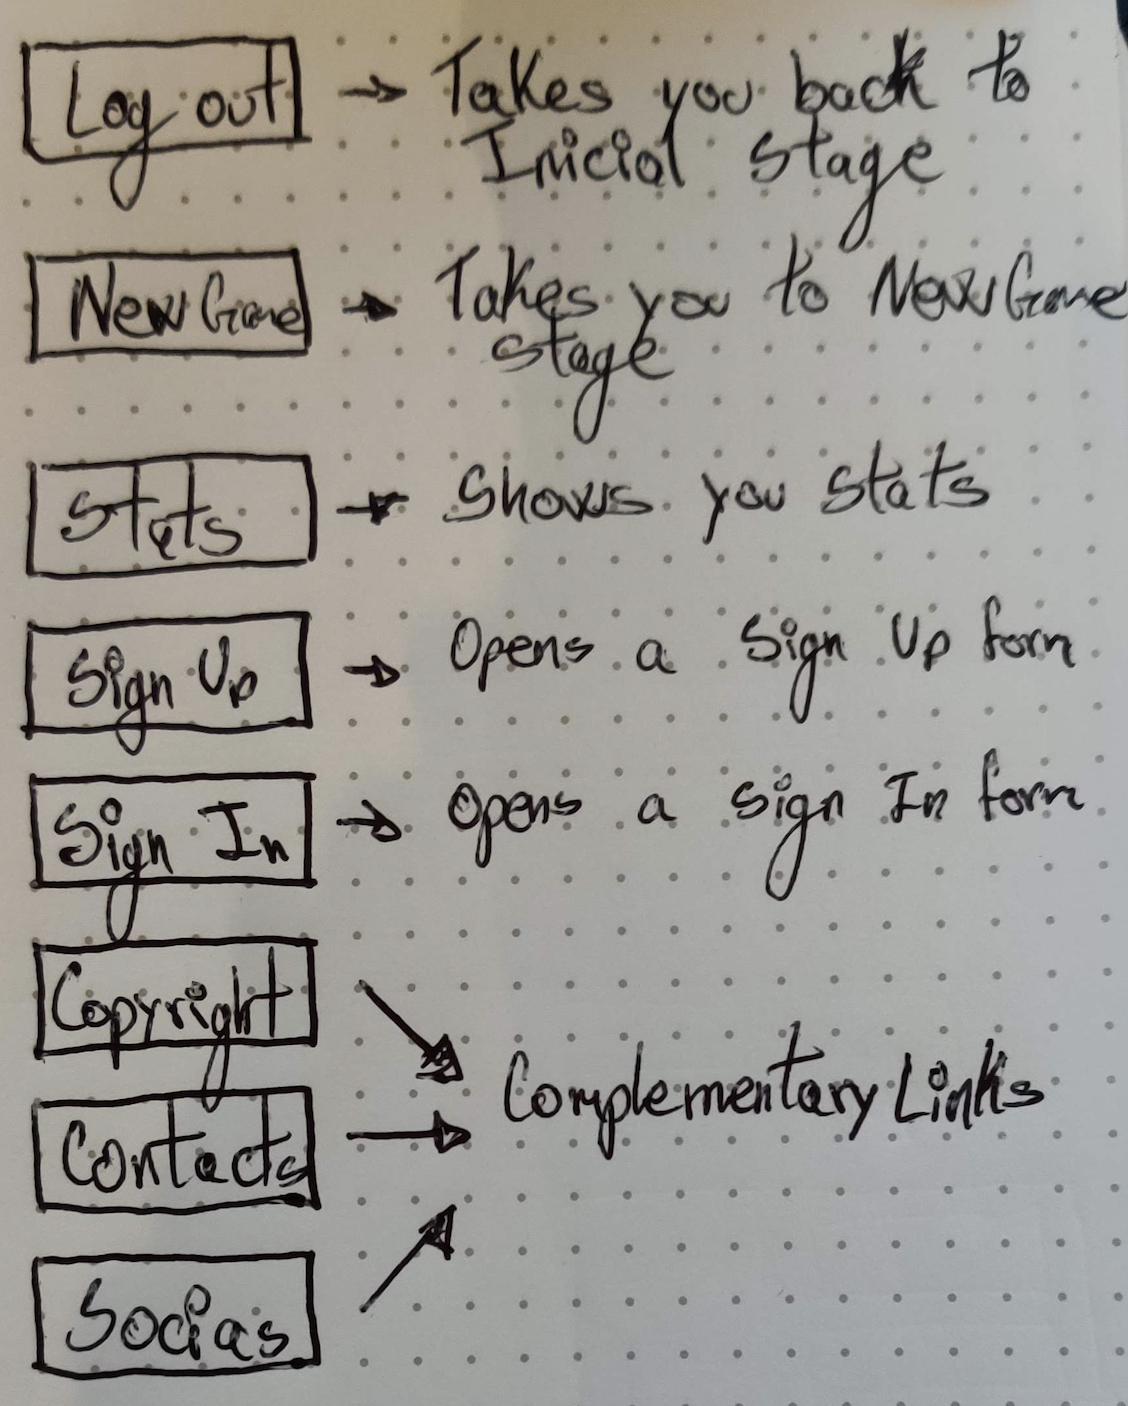 Log out → Takes you back to
Inicial stage
New Game → Takes you to New Game
stage
Stats → Shows you stats
Sign Up → Opens a Sign Up form
Sign In → Opens a sign In form
Copyright
Complementary Links
Contacts
Socias